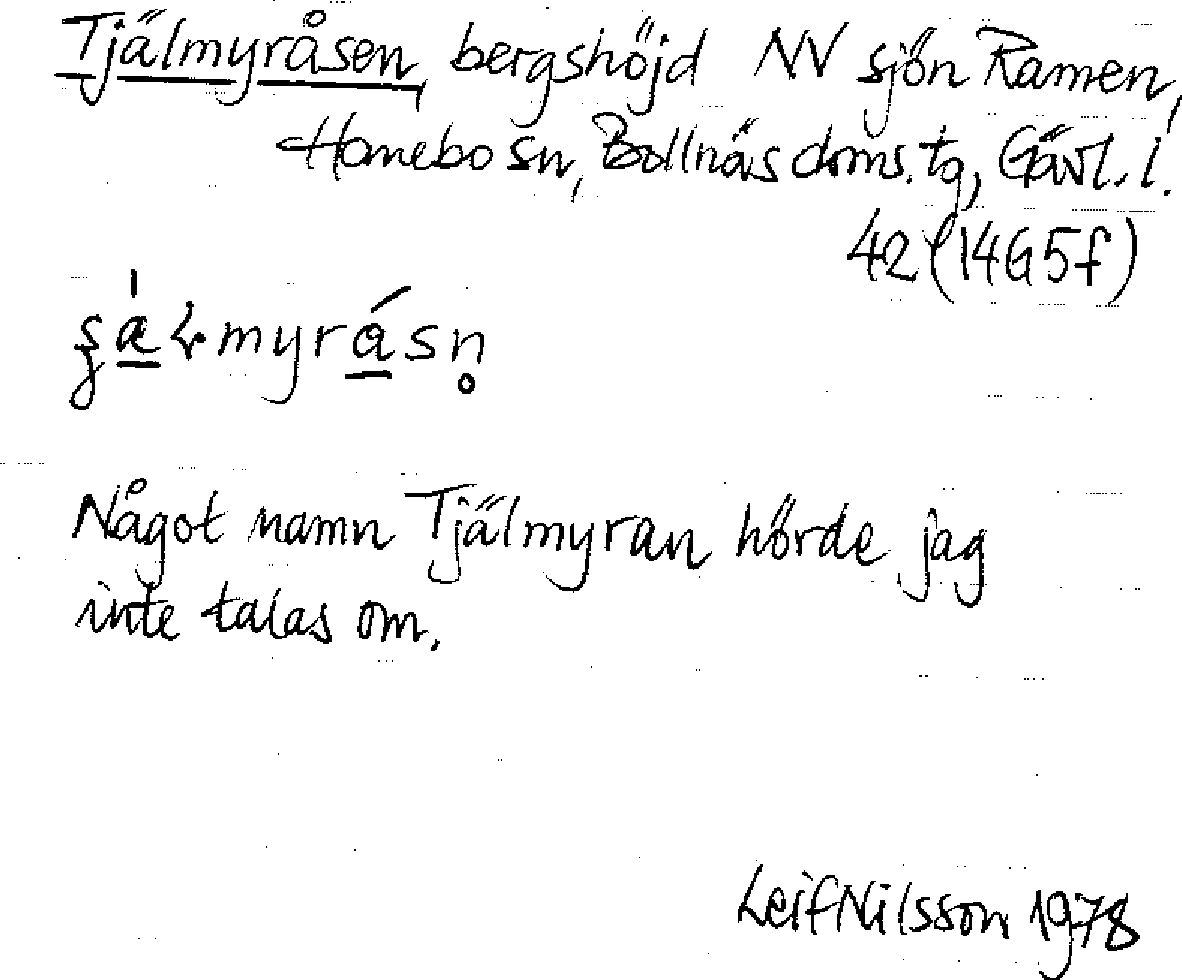 Tjälmyråsen, bergshöjd NV sjön Ramen,
Hanebo sn, Bollnäs doms.tg, Gävl. l.
42 (14G5f)
Något namn Tjälmyran hörde jag
inte talas om.
Leif Nilsson 1978